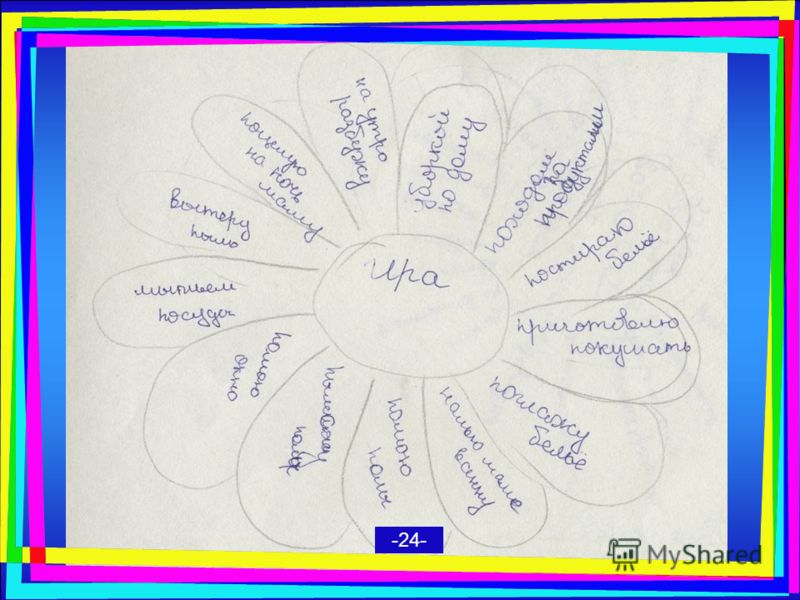 Ира
на утро
разбержу
уборкой
по дому
походом
за
продуктами
постираю
бельё
приготовлю
покушать
поглажу
бельё
налью маме
ванну
помою
полы
помою
окно
мытьем
посуды
вытеру
пыль
поцелую
на ночь
маму
-24-
MyShared